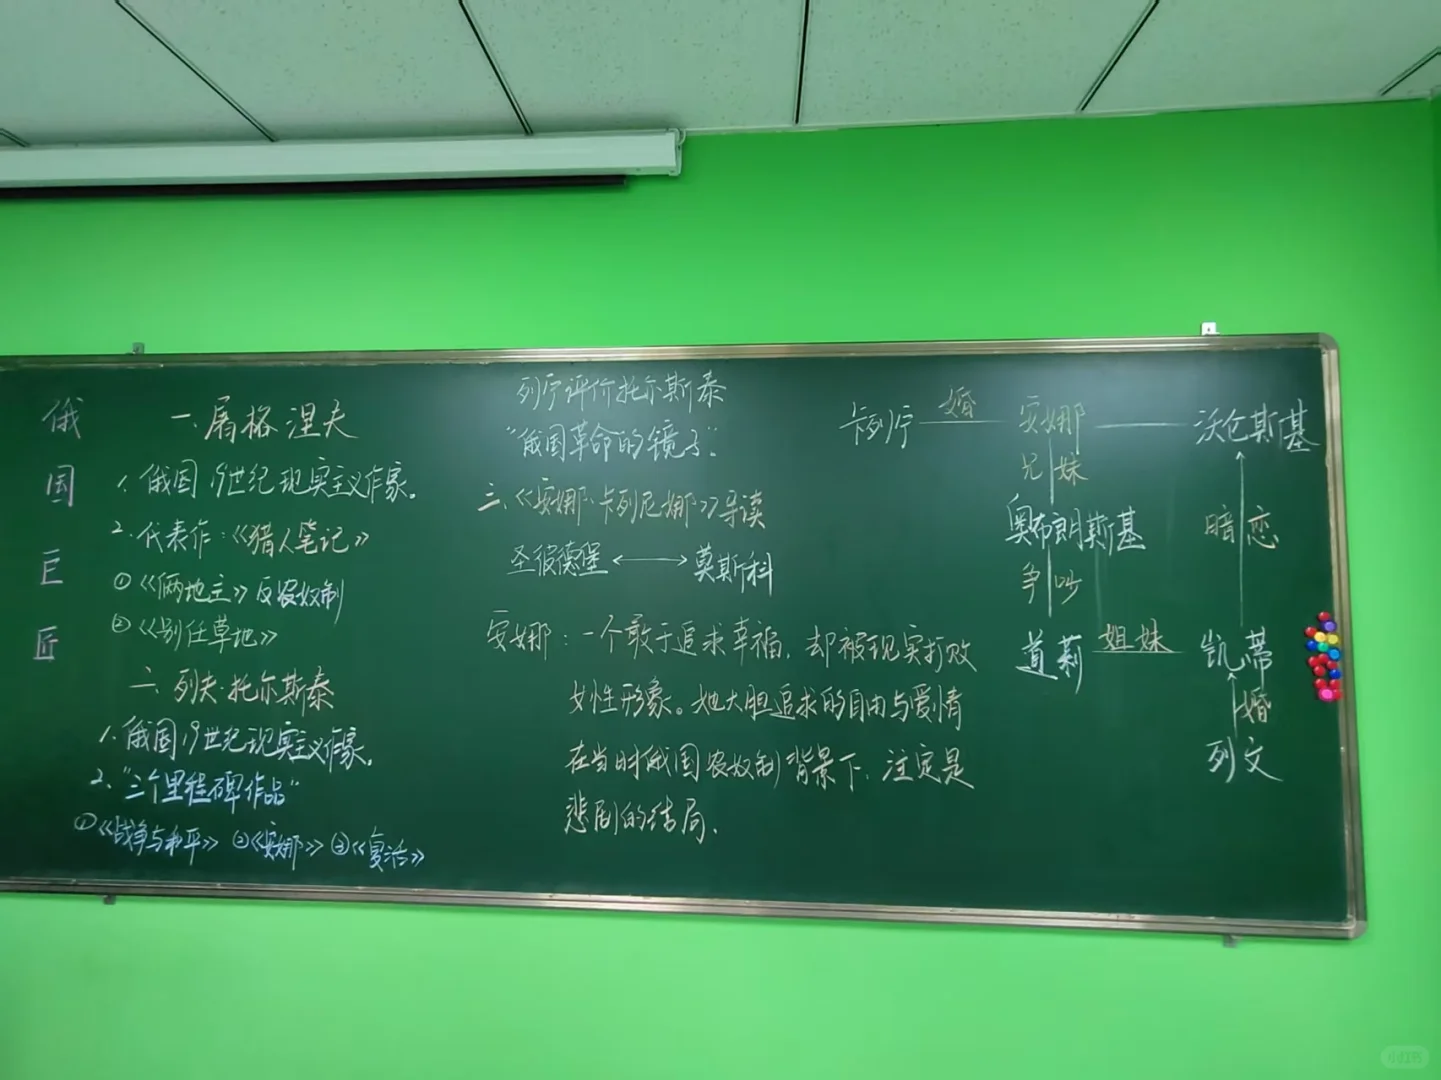 俄国巨匠
一、屠格涅夫
1. 俄国19世纪现实主义作家。
2. 代表作:《猎人笔记》
①《俩地主》反农奴制
②《别任草地》
二、列夫·托尔斯泰
1. 俄国19世纪现实主义作家。
2. "三个里程碑作品"
①《战争与和平》②《安娜》③《复活》
列宁评价托尔斯泰
"俄国革命的镜子".
三、《安娜·卡列尼娜》导读
圣彼德堡 ⟷ 莫斯科
安娜:一个敢于追求幸福,却被现实打败
女性形象。她大胆追求的自由与爱情
在当时俄国农奴制背景下,注定是
悲剧的结局.
卡列宁 婚 安娜 沃伦斯基
兄妹
奥布朗斯基 暗恋
争吵
道莉 姐妹 凯蒂
婚
列文
小红书